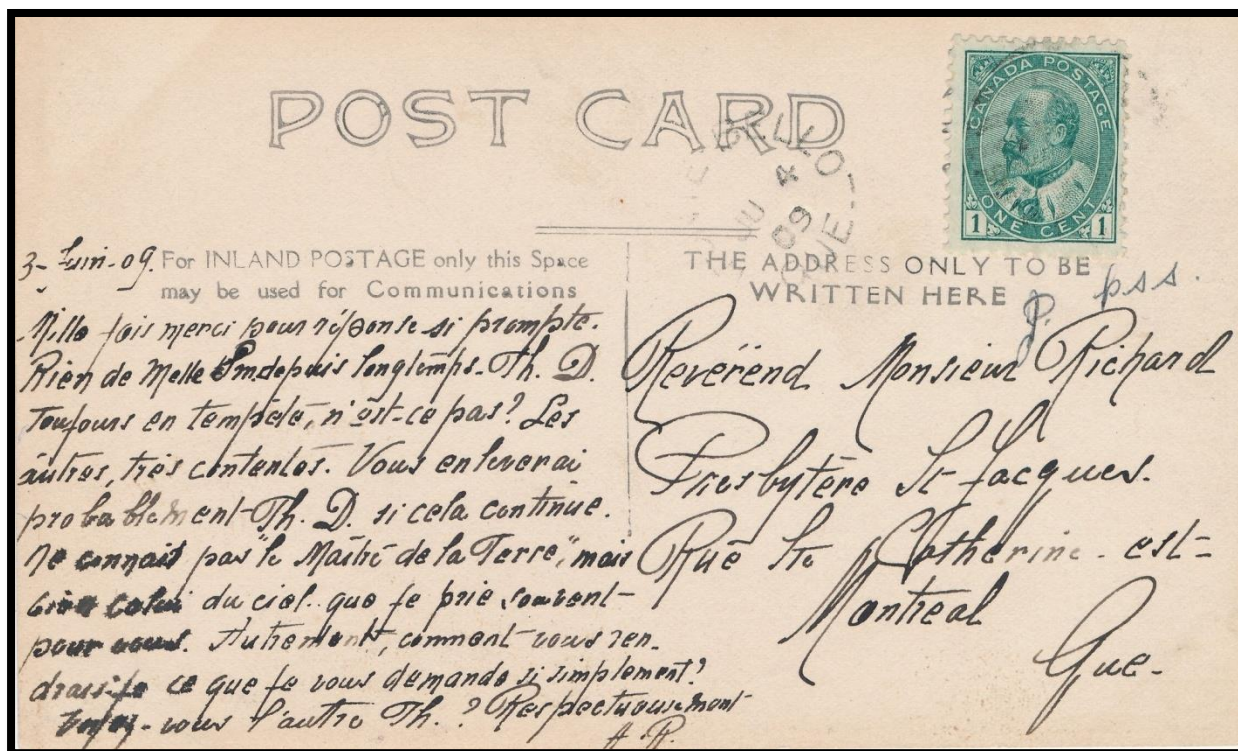 POST CARD
CANADA POSTAGE
1 ONE CENT 1
JU 4
09
QUE
3-Juin-09.
For INLAND POSTAGE only this Space
may be used for Communications
Mille fois merci pour réponse si prompte.
Rien de Melle depuis longtemps. Th. D.
Toujours en tempête, n'est-ce pas? Les
autres, très contentes. Vous enleverai
probablement Th. D. si cela continue.
Ne connait pas "le Maître de la Terre", mais
celui du ciel que je prie souvent
pour vous. Autrement, comment vous ren-
drais-je ce que je vous demande si simplement?
-vous l'autre Th. ? Respectueusement
A R.
THE ADDRESS ONLY TO BE
WRITTEN HERE
J. pss.
Reverend Monsieur Richard
Presbytère St-Jacques.
Rue Ste Catherine - est-
Montreal
Que-